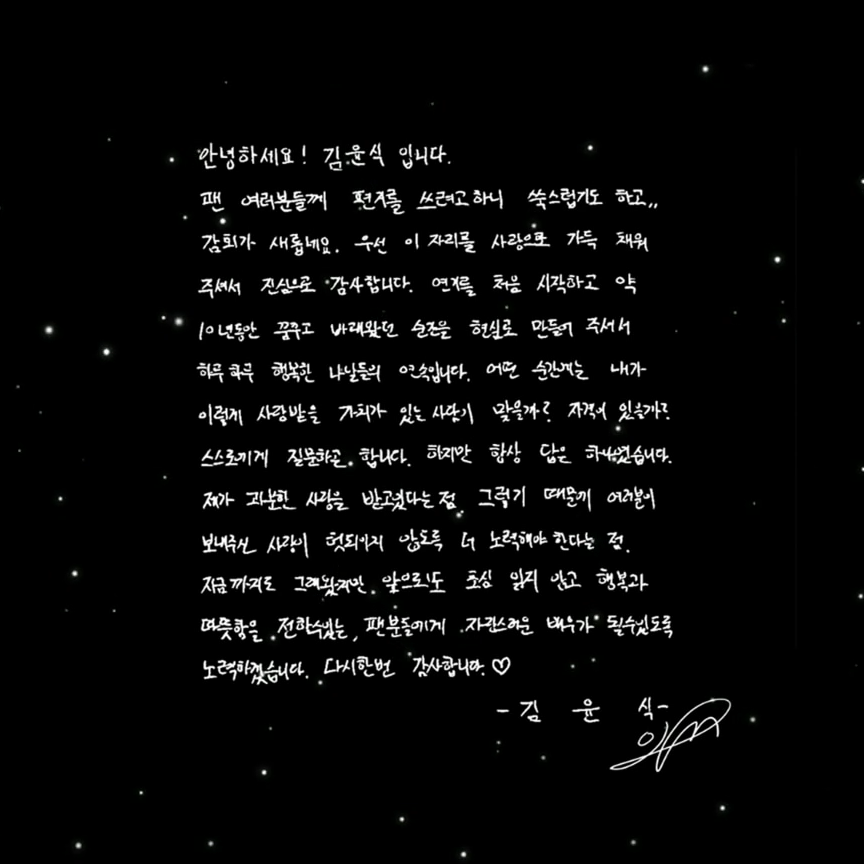 안녕하세요! 김윤식 입니다.
팬 여러분들께 편지를 쓰려고하니 쑥스럽기도 하고,,
감회가 새롭네요. 우선 이 자리를 사랑으로 가득 채워
주셔서 진심으로 감사합니다. 연기를 처음 시작하고 약
10년동안 꿈꾸고 바래왔던 순간을 현실로 만들어 주셔서
하루하루 행복한 나날들의 연속입니다. 어떤 순간에는 내가
이렇게 사랑받을 가치가 있는 사람이 맞을까? 자격이 있을까?
스스로에게 질문하곤 합니다. 하지만 항상 답은 하나였습니다.
제가 과분한 사랑을 받고있다는 점. 그렇기 때문에 여러분이
보내주신 사랑이 헛되이지 않도록 더 노력해야 한다는 점.
지금까지도 그래왔지만 앞으로도 초심 잃지 않고 행복과
따뜻함을 전할수있는, 팬분들에게 자랑스러운 배우가 될수있도록
노력하겠습니다. 다시한번 감사합니다.♡
-김 윤 식-